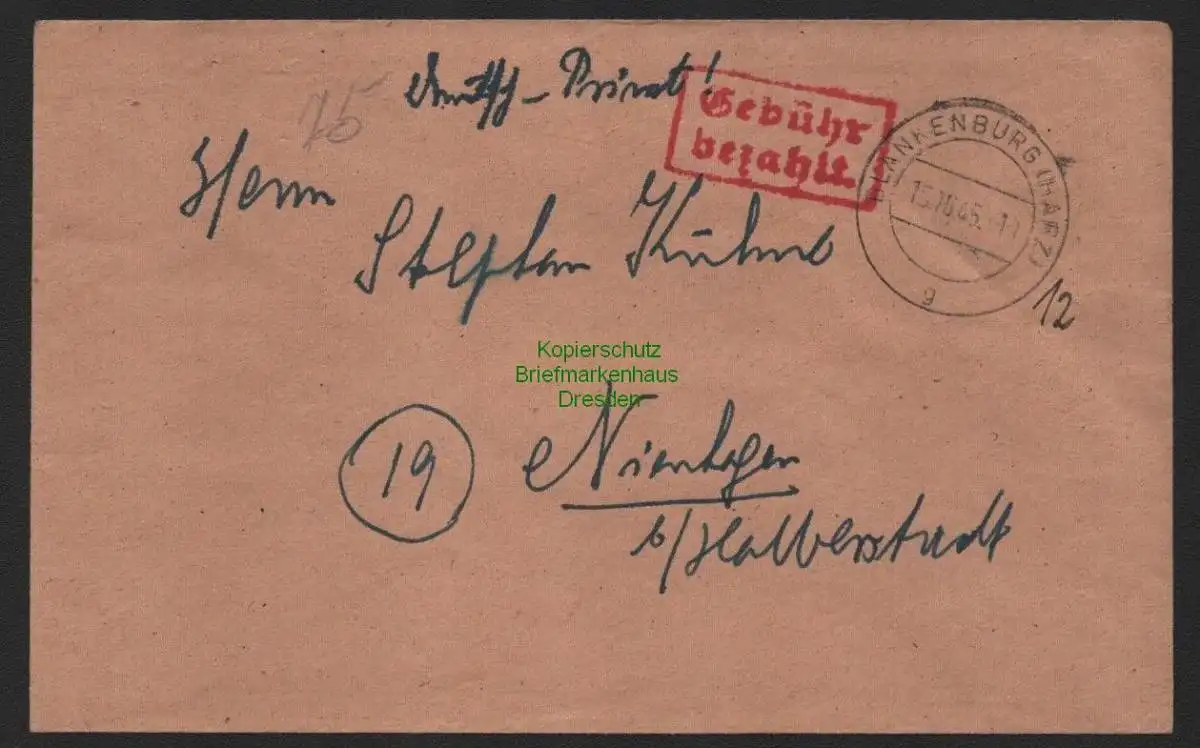 Deutsch - Privat!
75
Gebühr
bezahlt.
BLANKENBURG (HARZ)
g
12
Herrn
Stephan Kühne
Kopierschutz
Briefmarkenhaus
Dresden
19
Nienhagen
b/Halberstadt